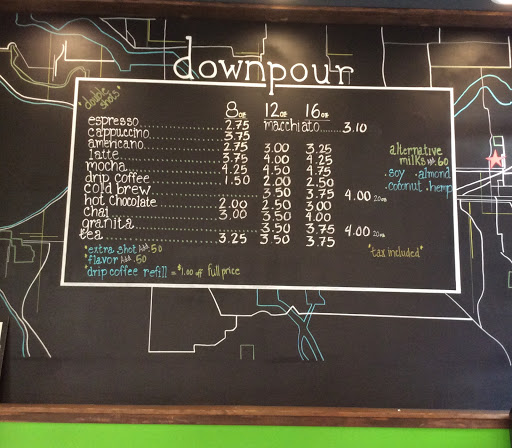 downpour
*double shots*
8oz 12oz 16oz
espresso 2.75 macchiato 3.10
cappuccino 3.75
americano 2.75 3.00 3.25
latte 3.75 4.00 4.25
mocha 4.25 4.50 4.75
drip coffee 1.50 2.00 2.50
cold brew 3.50 3.75 4.00 20oz
hot chocolate 2.00 2.50 3.00
chai 3.00 3.50 4.00
granita 3.50 3.75 4.00 20oz
tea 3.25 3.50 3.75
alternative
milks add .60
.soy .almond
.coconut .hemp
*extra shot add .50
*flavor add .50
*drip coffee refill = $1.00 off full price
*tax included*